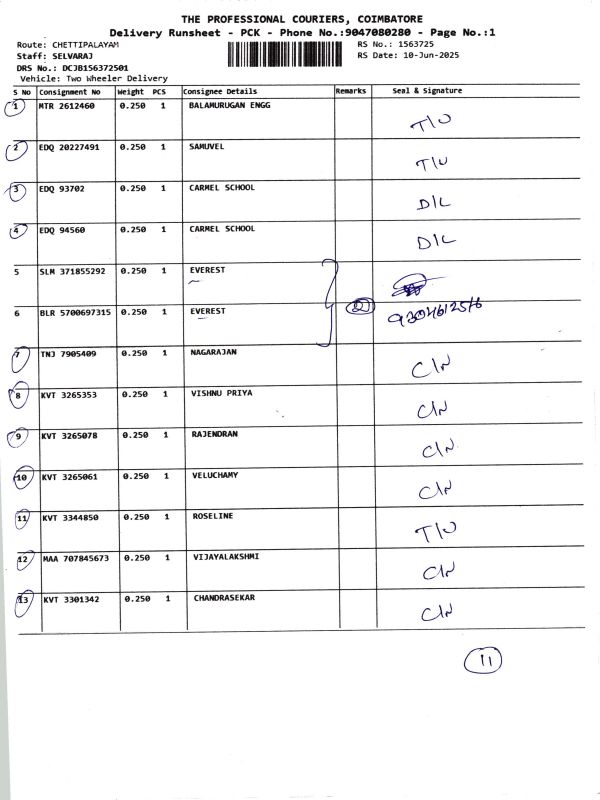 THE PROFESSIONAL COURIERS, COIMBATORE
Delivery Runsheet - PCK - Phone No.:9047080280 - Page No.:1
Route: CHETTIPALAYAM RS No.: 1563725
Staff: SELVARAJ RS Date: 10-Jun-2025
DRS No.: DCJB156372501
Vehicle: Two Wheeler Delivery
S No Consignment No Weight PCS Consignee Details Remarks Seal & Signature
1 MTR 2612460 0.250 1 BALAMURUGAN ENGG T/U
2 EDQ 20227491 0.250 1 SAMUVEL T/U
3 EDQ 93702 0.250 1 CARMEL SCHOOL D/L
4 EDQ 94560 0.250 1 CARMEL SCHOOL D/L
5 SLM 371855292 0.250 1 EVEREST
6 BLR 5700697315 0.250 1 EVEREST 2
7 TNJ 7905409 0.250 1 NAGARAJAN C/N
8 KVT 3265353 0.250 1 VISHNU PRIYA C/N
9 KVT 3265078 0.250 1 RAJENDRAN C/N
10 KVT 3265061 0.250 1 VELUCHAMY C/N
11 KVT 3344850 0.250 1 ROSELINE T/U
12 MAA 707845673 0.250 1 VIJAYALAKSHMI C/N
13 KVT 3301342 0.250 1 CHANDRASEKAR C/N
11